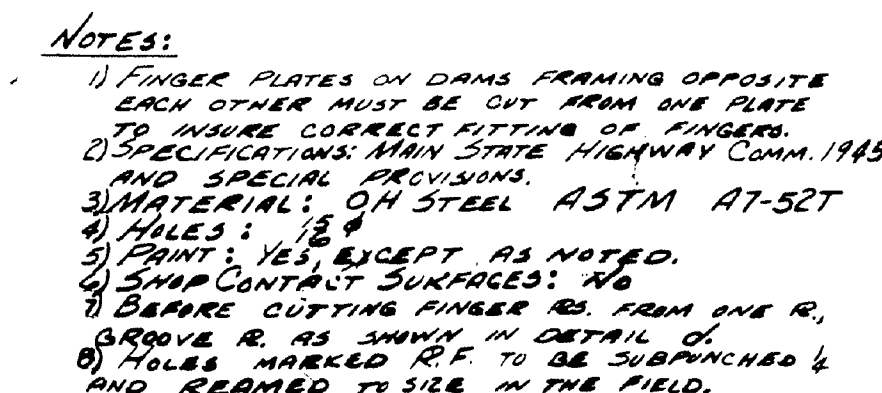 NOTES:
1) FINGER PLATES ON DAMS FRAMING OPPOSITE
EACH OTHER MUST BE CUT FROM ONE PLATE
TO INSURE CORRECT FITTING OF FINGERS.
2) SPECIFICATIONS: MAIN STATE HIGHWAY COMM. 1945
AND SPECIAL PROVISIONS.
3) MATERIAL: OH STEEL ASTM A7-52T
4) HOLES: 15/16 ⌀
5) PAINT: YES, EXCEPT AS NOTED.
6) SHOP CONTACT SURFACES: NO
7) BEFORE CUTTING FINGER ℞S. FROM ONE ℞.,
GROOVE ℞. AS SHOWN IN DETAIL d.
8) HOLES MARKED R.F. TO BE SUBPUNCHED 1/4
AND REAMED TO SIZE IN THE FIELD.